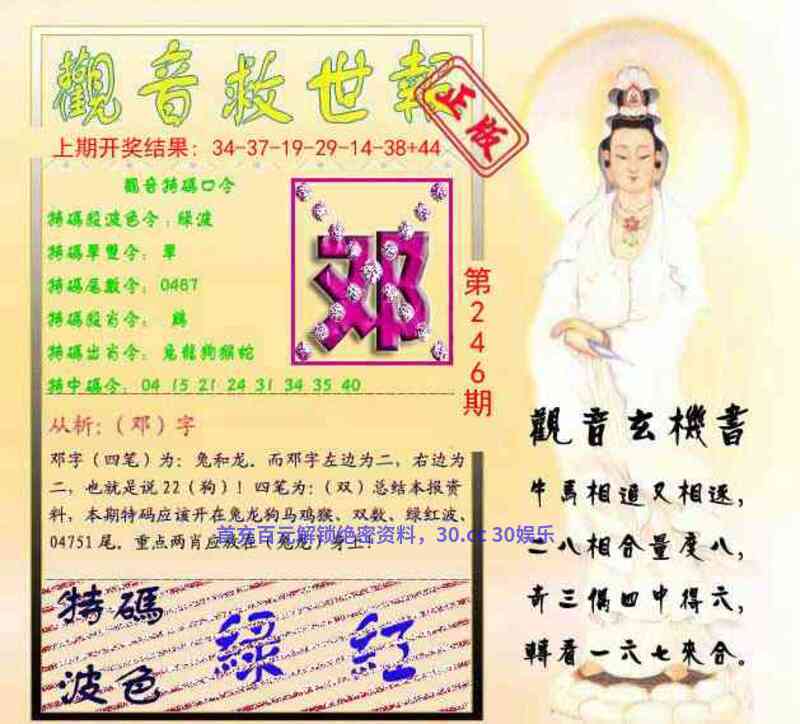 觀音救世報
正版
上期开奖结果：34-37-19-29-14-38+44
觀音特碼口令
特碼段波色令：綠波
特碼單雙令：單
特碼尾數令：0487
特碼段肖令：鷄
特碼出肖令：兔龍狗猴蛇
特中碼令：04 15 21 24 31 34 35 40
邓
第246期
从析：（邓）字
邓字（四笔）为：兔和龙．而邓字左边为二，右边为
二，也就是说22（狗）！四笔为：（双）总结本报资
料，本期特码应该开在兔龙狗马鸡猴、双数、绿红波、
04751尾．重点两肖应放在（兔龙）身上！
首充百元解锁绝密资料，30.cc 30娱乐
特碼
波色
綠 紅
觀音玄機書
牛馬相追又相逐，
二八相合量度八，
奇三偶四中得六，
轉看一六七來合。